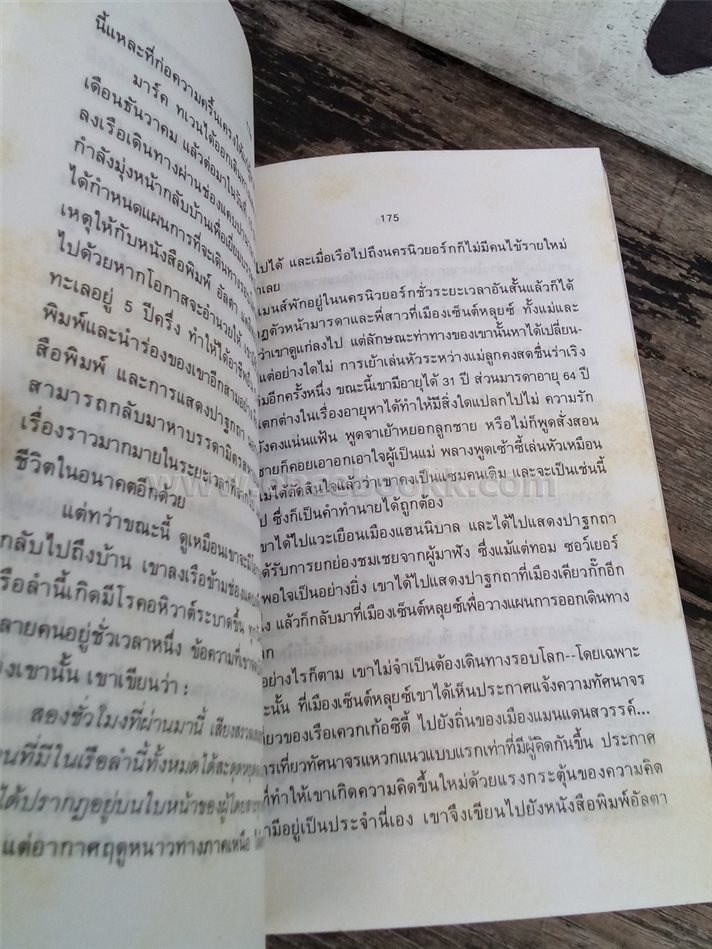 นี้แหละที่ก่อความครื้นเครงให้
มาร์ค ทเวนได้ออกเดินทาง
เดือนธันวาคม แล้วต่อมาในวันที่
ลงเรือเดินทางผ่านช่องแคบปานา
กำลังมุ่งหน้ากลับบ้านเพื่อเยี่ยมมารดา
ได้กำหนดแผนการที่จะเดินทางรอบ
เหตุให้กับหนังสือพิมพ์ อัลตา
ไปด้วยหากโอกาสจะอำนวยให้
ทะเลอยู่ 5 ปีครึ่ง ทำให้ได้อาชีพ
พิมพ์และนำร่องของเขาอีกสามอย่าง
สือพิมพ์ และการแสดงปาฐกถา
สามารถกลับมาหาบรรดามิตรสหาย
เรื่องราวมากมายในระยะเวลาที่จากไป
ชีวิตในอนาคตอีกด้วย
แต่ทว่าขณะนี้ ดูเหมือนเขาจะมีโอ
กลับไปถึงบ้าน เขาลงเรือข้ามช่องแคบ
รือลำนี้เกิดมีโรคอหิวาต์ระบาดขึ้น
ลายคนอยู่ชั่วเวลาหนึ่ง ข้อความที่เขา
งเขานั้น เขาเขียนว่า :
สองชั่วโมงที่ผ่านมานี้ เสียงสรวล
นที่มีในเรือลำนี้ทั้งหมดได้สะดุดหยุด
ได้ปรากฏอยู่บนใบหน้าของผู้โดยสาร
แต่อากาศฤดูหนาวทางภาคเหนือ
175
ไปได้ และเมื่อเรือไปถึงนครนิวยอร์กก็ไม่มีคนไข้รายใหม่
าเลย
แมนส์พักอยู่ในนครนิวยอร์กชั่วระยะเวลาอันสั้นแล้วก็ได้
ฏตัวหน้ามารดาและพี่สาวที่เมืองเซ็นต์หลุยซ์ ทั้งแม่และ
ว่าเขาดูแก่ลงไป แต่ลักษณะท่าทางของเขานั้นหาได้เปลี่ยน-
แต่อย่างใดไม่ การเย้าเล่นหัวระหว่างแม่ลูกคงสดชื่นร่าเริง
ิมอีกครั้งหนึ่ง ขณะนี้เขามีอายุได้ 31 ปี ส่วนมารดาอายุ 64 ปี
แตกต่างในเรื่องอายุหาได้ทำให้มีสิ่งใดแปลกไปไม่ ความรัก
ังคงแน่นแฟ้น พูดจาเย้าหยอกลูกชาย หรือไม่ก็พูดสั่งสอน
ชายก็คอยเอาอกเอาใจผู้เป็นแม่ พลางพูดเซ้าซี้เล่นหัวเหมือน
ม่ได้ตัดสินใจแล้วว่าเขาคงเป็นแซมคนเดิม และจะเป็นเช่นนี้
ป ซึ่งก็เป็นคำทำนายได้ถูกต้อง
ขาได้ไปแวะเยือนเมืองแฮนนิบาล และได้ไปแสดงปาฐกถา
ด้รับการยกย่องชมเชยจากผู้มาฟัง ซึ่งแม้แต่ทอม ซอว์เยอร์
พอใจเป็นอย่างยิ่ง เขาได้ไปแสดงปาฐกถาที่เมืองเคียวกั๊กอีก
ง แล้วก็กลับมาที่เมืองเซ็นต์หลุยซ์เพื่อวางแผนการออกเดินทาง
ลก
อย่างไรก็ตาม เขาไม่จำเป็นต้องเดินทางรอบโลก--โดยเฉพาะ
ะนั้น ที่เมืองเซ็นต์หลุยซ์เขาได้เห็นประกาศแจ้งความทัศนาจร
ี่ยวของเรือเควกเก้อซิตี้ ไปยังถิ่นของเมืองแมนแดนสวรรค์...
การเที่ยวทัศนาจรแหวกแนวแบบแรกเท่าที่มีผู้คิดกันขึ้น ประกาศ
ที่ทำให้เขาเกิดความคิดขึ้นใหม่ด้วยแรงกระตุ้นของความคิด
ามีอยู่เป็นประจำนี่เอง เขาจึงเขียนไปยังหนังสือพิมพ์อัลตา